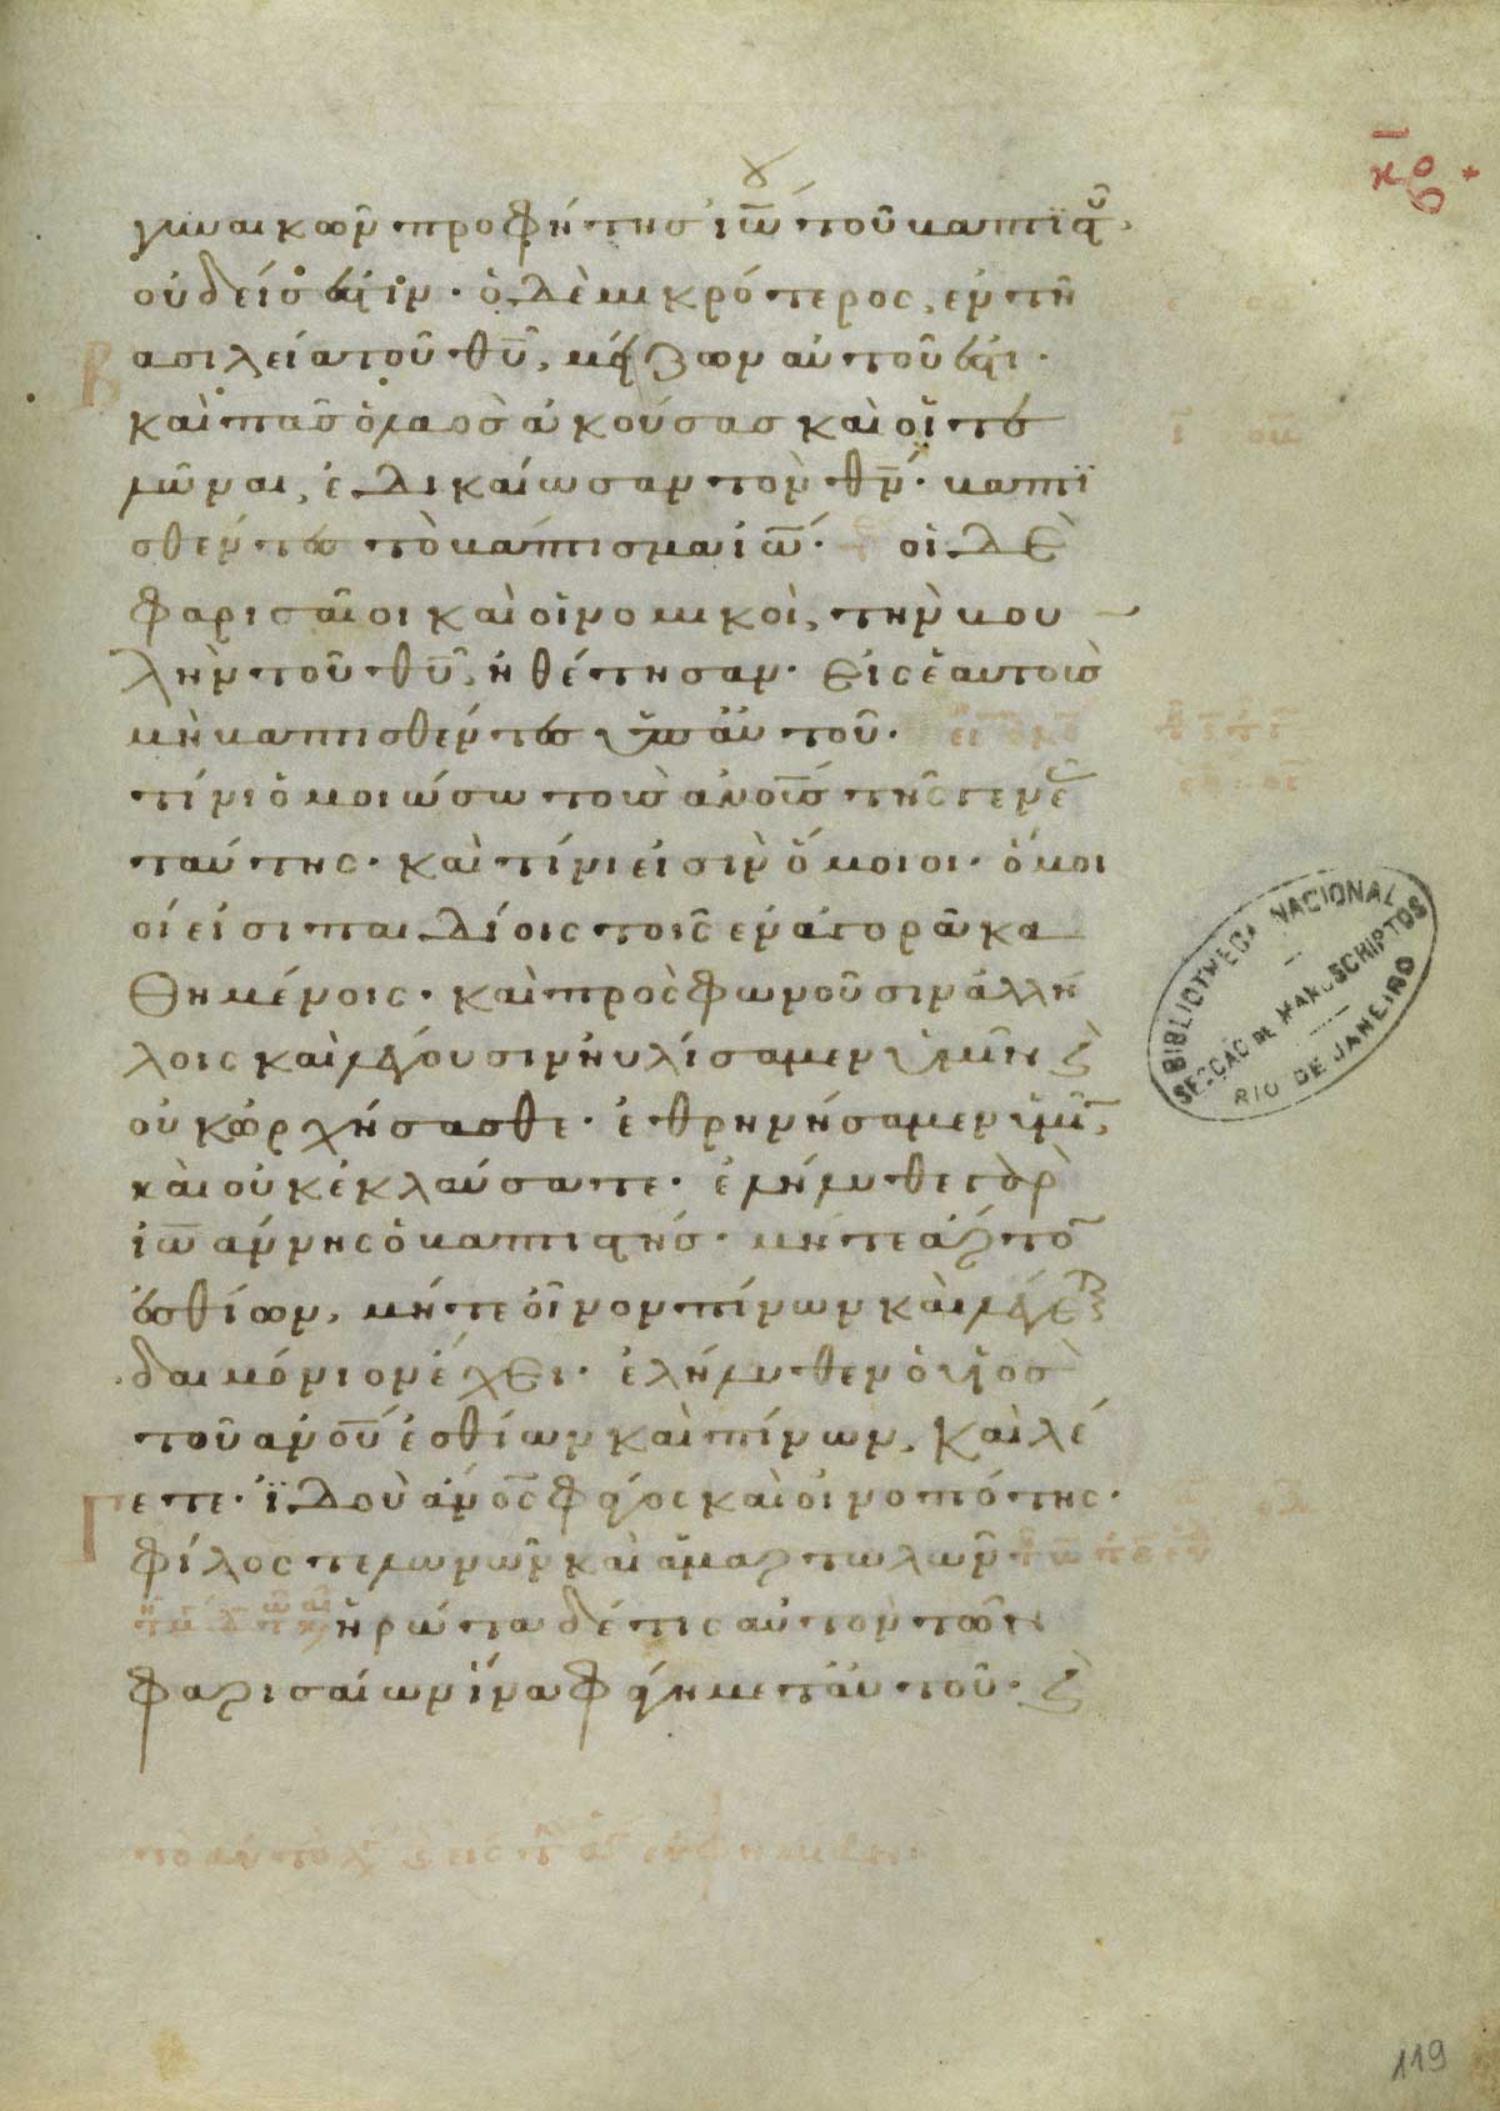 κθ
γυναικῶν προφήτησ ἰω̅ τοῦ βαπτϊστοῦ,
οὐδείσ ἐστιν· ὁ δὲ μικρότερος, ἐν τῆ
Βασιλεία τοῦ θυ̅, μείζων αὐτοῦ ἐστι·
καὶ πᾶσ ὁ λαὸσ ἀκούσασ καὶ οἱ τε
λῶναι, ἐδικαίωσαν τὸν θν̅· βαπτϊ
σθέντεσ τὸ βάπτισμα ἰω̅· οἱ δὲ
φαρισαῖοι καὶ οἱ νομικοὶ, τὴν βου
λὴν τοῦ θυ̅, ἠθέτησαν· εἰς ἑαυτοὺσ
μὴ βαπτισθέντεσ ὑπ αὐτοῦ·
τίνι ὁμοιώσω τοὺσ ἀνο̅υσ τῆς γενε
ταύτης· καὶ τίνι εἰσὶν ὅμοιοι· ὅμοι
οί εἰσι παιδίοις τοῖς ἐν ἀγορᾶ κα
θημένοις· καὶ προσφωνοῦσιν ἀλλή
λοις καὶ λέγουσιν ηὐλίσαμεν ὑμῖν
οὐκ ὠρχήσασθε· ἐθρηνήσαμεν ὑμῖ,
καὶ οὐκ ἐκλαύσατε· ἐλήλυθε γὰρ
ἰω̅άννης ὁ βαπτιστήσ· μήτε ἄρτο
ἐσθίων, μήτε οἶνον πίνων καὶ λέγετε
δαιμόνιον ἔχει· ἐλήλυθεν ὁ υἱὸσ
τοῦ ἀνο̅υ ἐσθίων καὶ πίνων, καὶ λέ
Γετε· ἰδοὺ ἄνο̅ς φάγος καὶ οἰνοπότης·
φίλος τελωνῶν καὶ ἁμαρτωλῶν
ἠρώτα δέ τις αὐτὸν τῶν
φαρισαίων ἵνα φάγη μετ αὐτοῦ·
BIBLIOTHECA NACIONAL
SECÇÃO DE MANUSCRIPTOS
RIO DE JANEIRO
119